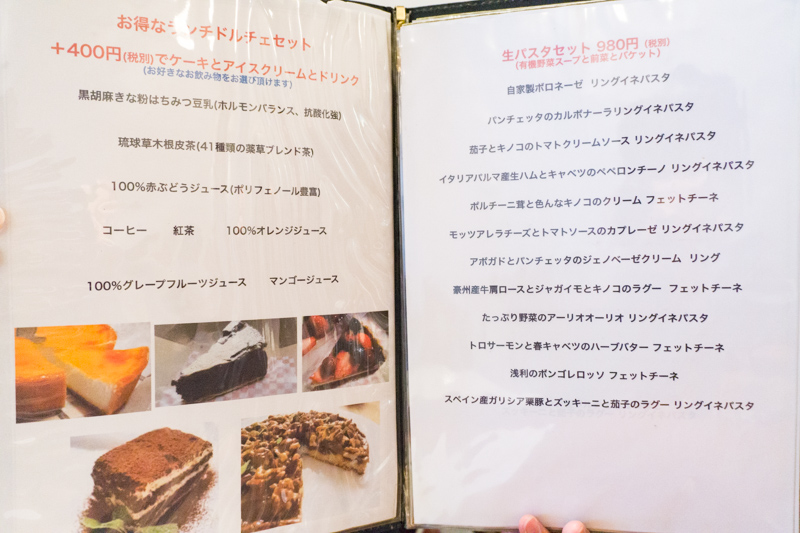 お得なランチドルチェセット
+400円(税別)でケーキとアイスクリームとドリンク
(お好きなお飲み物をお選び頂けます)
黒胡麻きな粉はちみつ豆乳(ホルモンバランス、抗酸化強)
琉球草木根皮茶(41種類の薬草ブレンド茶)
100%赤ぶどうジュース(ポリフェノール豊富)
コーヒー 紅茶 100%オレンジジュース
100%グレープフルーツジュース マンゴージュース
生パスタセット 980円 (税別)
(有機野菜スープと前菜とバケット)
自家製ボロネーゼ リングイネパスタ
パンチェッタのカルボナーラリングイネパスタ
茄子とキノコのトマトクリームソース リングイネパスタ
イタリアパルマ産生ハムとキャベツのペペロンチーノ リングイネパスタ
ポルチーニ茸と色んなキノコのクリーム フェットチーネ
モッツアレラチーズとトマトソースのカプレーゼ リングイネパスタ
アボガドとパンチェッタのジェノベーゼクリーム リング
豪州産牛肩ロースとジャガイモとキノコのラグー フェットチーネ
たっぷり野菜のアーリオオーリオ リングイネパスタ
トロサーモンと春キャベツのハーブバター フェットチーネ
浅利のボンゴレロッソ フェットチーネ
スペイン産ガリシア栗豚とズッキーニと茄子のラグー リングイネパスタ